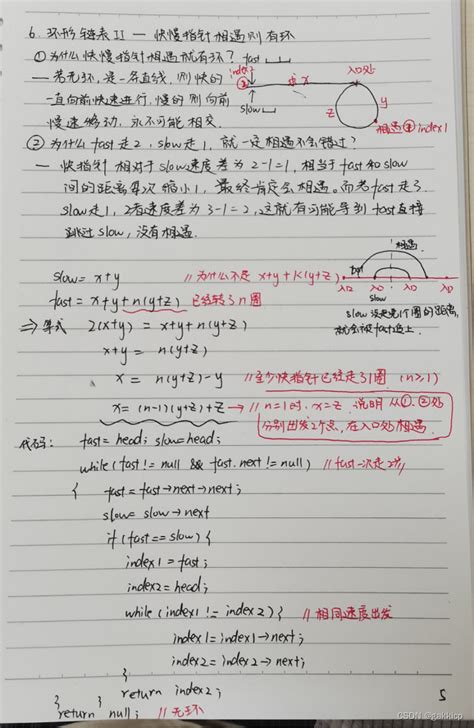 6. 环形链表 II — 快慢指针相遇则有环
① 为什么快慢指针相遇就有环?
fast
index2
x
入口处
— 若无环,是一条直线,则快的
slow
z
y
一直向前快速进行,慢的则向前
相遇 index1
慢速移动,永不可能相交.
② 为什么 fast 走 2, slow 走 1, 就一定相遇不会错过?
— 快指针相对于 slow 速度差为 2-1=1, 相当于 fast 和 slow
间的距离每次缩小1, 最终肯定会相遇。而若 fast 走 3,
slow 走 1, 2者速度差为 3-1=2, 这就有可能导致 fast 直接
跳过 slow, 没有相遇.
相遇
fast
slow = x+y // 为什么不是 x+y+k(y+z)
入口 入口 入口 入口
slow
fast = x+y+n(y+z) 已经转了n圈
slow 没走完1个圈的距离,
就会被 fast 追上.
=> 等式 2(x+y) = x+y+n(y+z)
x+y = n(y+z)
x = n(y+z)-y // 至少快指针已经走了1圈 (n≥1)
x = (n-1)(y+z)+z → // n=1时, x=z. 说明从①、②处
分别出发2个点, 在入口处相遇.
代码: fast=head; slow=head;
while(fast != null && fast.next != null) // fast一次走2步
{ fast = fast->next->next;
slow = slow->next
if(fast == slow) {
index1 = fast;
index2 = head;
while (index1 != index2) { // 相同速度出发
index1 = index1->next;
index2 = index2->next;
}
} } return index2;
return null; // 无环
5
CSDN @gakkicp